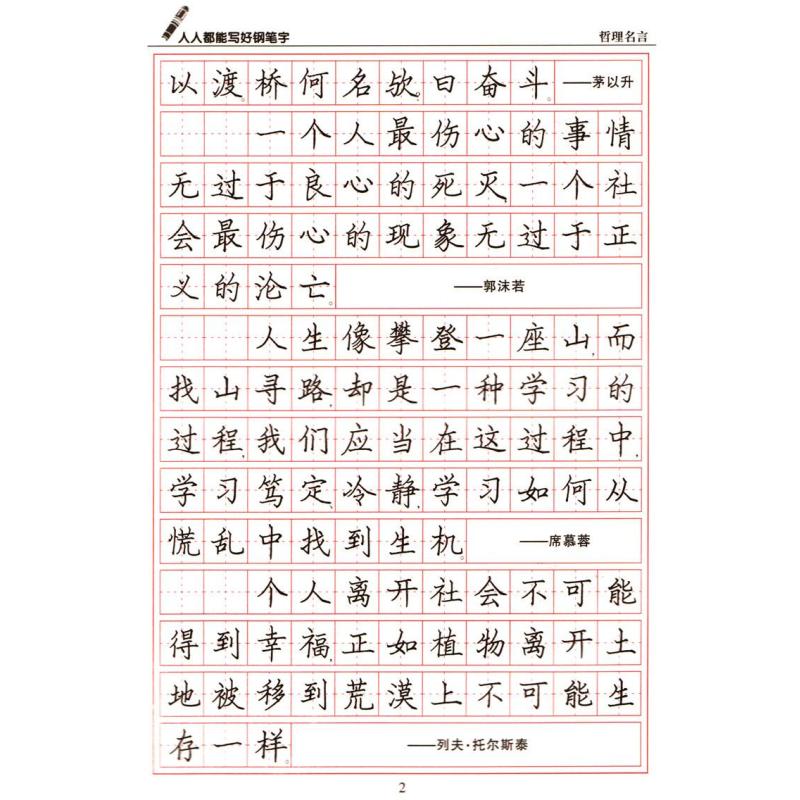 人人都能写好钢笔字
哲理名言
以渡桥何名欤。曰奋斗。——茅以升
一个人最伤心的事情
无过于良心的死灭,一个社
会最伤心的现象无过于正
义的沦亡。——郭沫若
人生像攀登一座山,而
找山寻路,却是一种学习的
过程,我们应当在这过程中,
学习笃定、冷静,学习如何从
慌乱中找到生机。——席慕蓉
个人离开社会不可能
得到幸福,正如植物离开土
地被移到荒漠上不可能生
存一样。——列夫·托尔斯泰
2